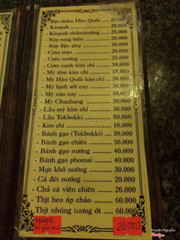 - Bạt chiên Hàn Quốc 20.000
- Kimpab 20.000
- Kimpab chiên 30.000
- Súp rong biển 20.000
- Súp đậu phụ 30.000
- Cơm trộn 30.000
- Cơm nướng 25.000
- Cơm canh kim chi 30.000
- Mỳ tôm kim chi 30.000
- Mỳ Hàn Quốc kim chi 30.000
- Mỳ lạnh sốt cay 30.000
- Mỳ xào cay 30.000
- Mỳ Chachang 20.000
- Lẩu mỳ kim chi 30.000
- Lẩu Tokbokki 50.000
- Kim chi 10.000
- Bánh gạo (Tokbokki) 20.000
- Bánh gạo chiên 30.000
- Bánh gạo nướng 40.000
- Bánh gạo phomai 40.000
- Mực khô nướng 30.000
- Cá đét nướng 20.000
- Chả cá viên chiên 20.000
- Thịt heo áp chảo 60.000
- Thịt nhúng tương ớt 60.000
20.000